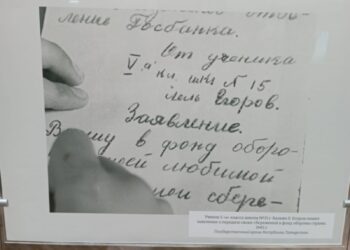 ление Госбанка.
От ученика
V "а" кл. шк. № 15
Егоров.
Заявление.
в фонд оборо-
любимой
сбере-
Ученик 5 «а» класса школы №15 г. Казани Э. Егоров пишет
заявление о передаче своих сбережений в фонд обороны страны.
1941 г.
Государственный архив Республики Татарстан